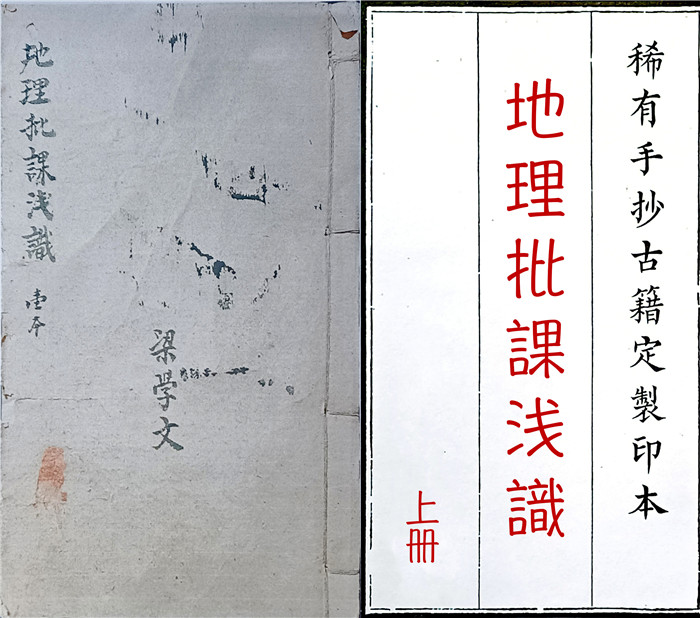 地理批課浅識
壹本
梁学文
稀有手抄古籍定製印本
地理批課浅識
上冊